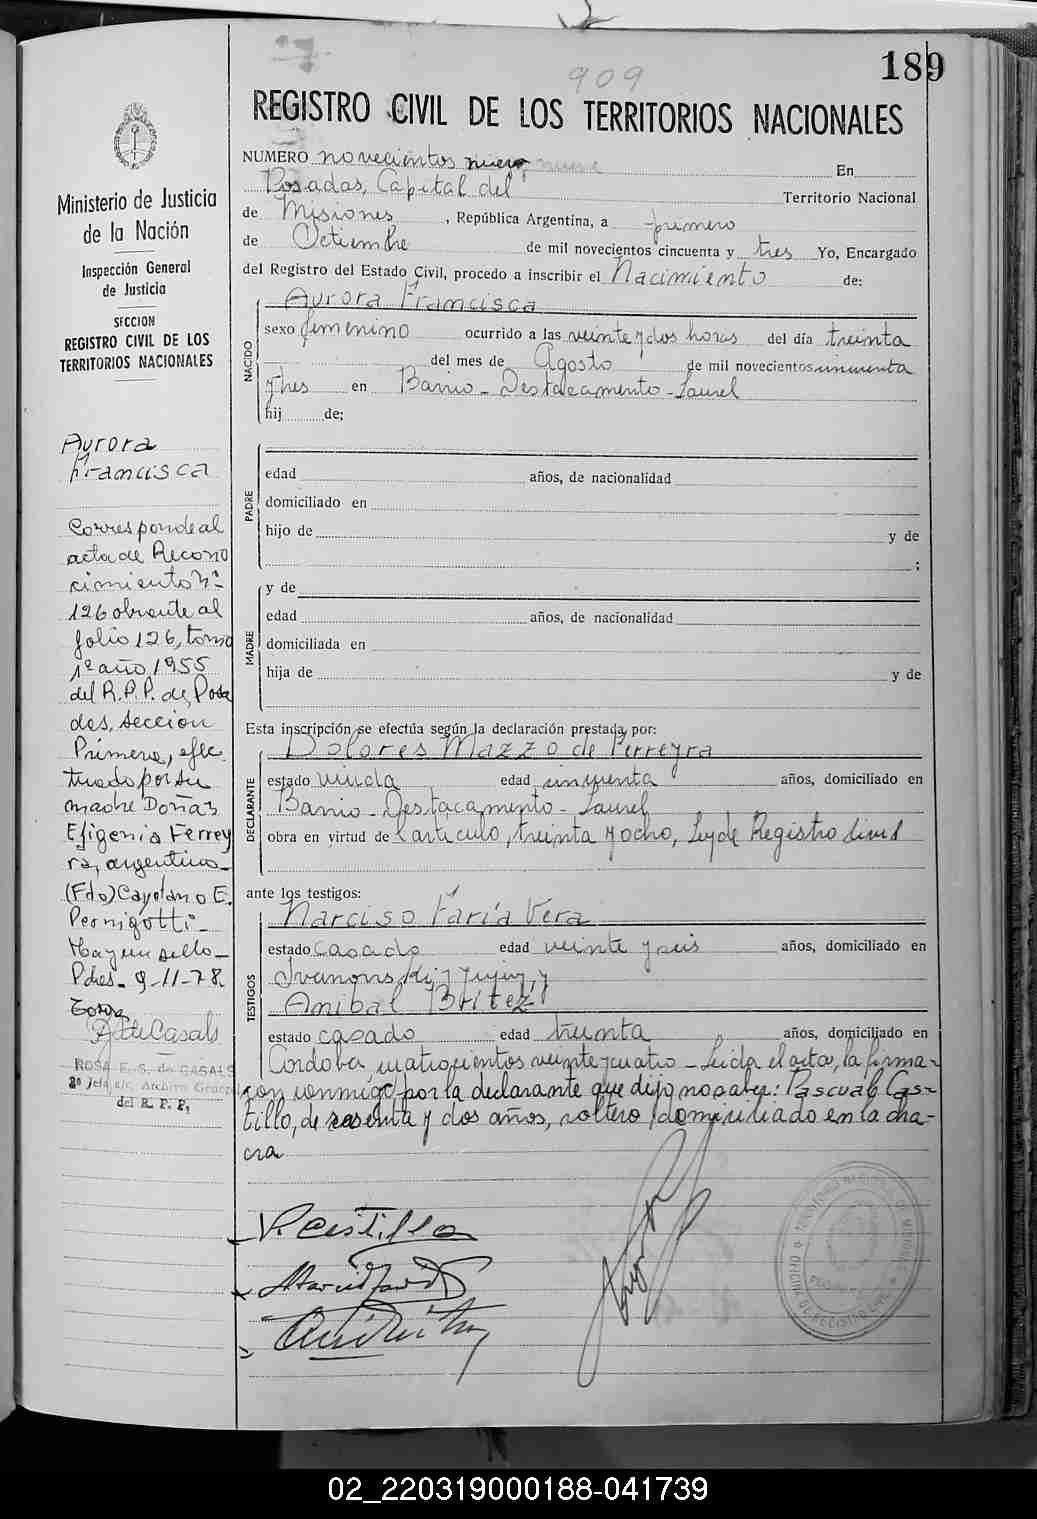 189
909
REGISTRO CIVIL DE LOS TERRITORIOS NACIONALES
NUMERO novecientos nueve En
Posadas, Capital del Territorio Nacional
de Misiones, República Argentina, a primero
de Octiembre de mil novecientos cincuenta y tres Yo, Encargado
del Registro del Estado Civil, procedo a inscribir el Nacimiento de:
NACIDO
Aurora Francisca
sexo femenino ocurrido a las veinte y dos horas del día treinta
del mes de Agosto de mil novecientos cincuenta
y tres en Barrio - Destacamento - Laurel
hij de;
PADRE
edad años, de nacionalidad
domiciliado en
hijo de y de
;
MADRE
y de
edad años, de nacionalidad
domiciliada en
hija de y de
Esta inscripción se efectúa según la declaración prestada por:
DECLARANTE
Dolores Mazzo de Ferreyra
estado viuda edad cincuenta años, domiciliado en
Barrio - Destacamento - Laurel
obra en virtud de l articulo, treinta y ocho, Ley de Registro Civil
ante los testigos:
TESTIGOS
Narciso Faría Vera
estado casado edad veinte y seis años, domiciliado en
y Jujuy, y
Anibal Britez
estado casado edad treinta años, domiciliado en
Cordoba, cuatrocientos veinte y cuatro - Leida el acta, la firma-
ron conmigo, por la declarante que dijo no saber: Pascual Cas-
tillo, de sesenta y dos años, soltero, domiciliado en la cha-
cra
P. Castillo
Ministerio de Justicia
de la Nación
Inspección General
de Justicia
SECCION
REGISTRO CIVIL DE LOS
TERRITORIOS NACIONALES
Aurora
Francisca
Corresponde al
acta de Recono
cimiento Nº
126 obrante al
folio 126, tomo
1º año 1955
del R.P.P. de Posa
das, sección
Primera, efec
tuado por su
madre Doña
Efigenia Ferrey
ra, argentina -
(Fdo) Cayetano E.
Pernigotti -
Hay un sello -
Pdas - 9-11-78
R de Casals
ROSA E. S. de CASALS
2º Jefe Dic. Archivo General
del R. P. P.
TERRITORIO NACIONAL DE MISIONES
OFICINA DE REGISTRO CIVIL
02_220319000188-041739